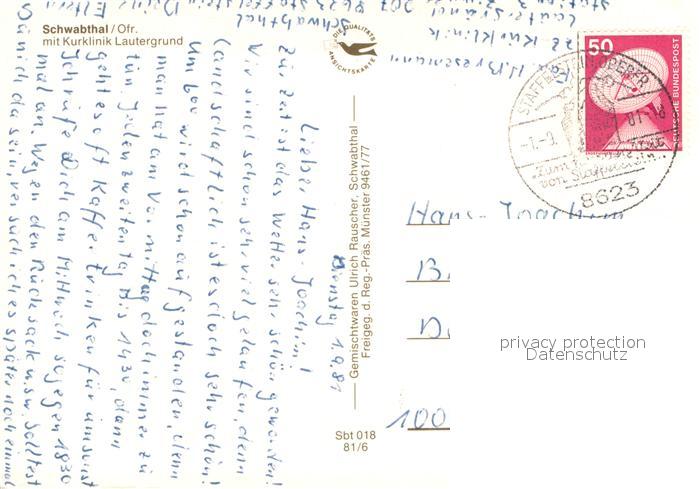 Schwabthal / Ofr.
mit Kurklinik Lautergrund
DIE QUALITÄTS
ANSICHTSKARTE
Schwabthal
Dienstag 1.9.81
Lieber Hans-Joachim!
Zur Zeit ist das Wetter sehr schön geworden!
Wir sind schon sehr viel gelaufen, denn
landschaftlich ist es doch sehr schön!
Um 600 wird schon aufgestanden, denn
man hat am Vormittag doch immer zu
tun. Jeden zweiten Tag bis 1430, dann
geht es oft Kaffee trinken für umsonst
Ich rufe Dich am Mittwoch so gegen 1830
mal an. Wegen den Rucksack usw. Solltest
da sein, versuch ich es später noch einmal
Gemischtwaren Ulrich Rauscher, Schwabthal
Freigeg. d. Reg.-Präs. Münster 9461/77
Sbt 018
81/6
50
DEUTSCHE BUNDESPOST
STAFFELSTEIN, OBERFR
-1.-9.
81-18
8623
Hans-Joachim
B.
D.
100
privacy protection
Datenschutz